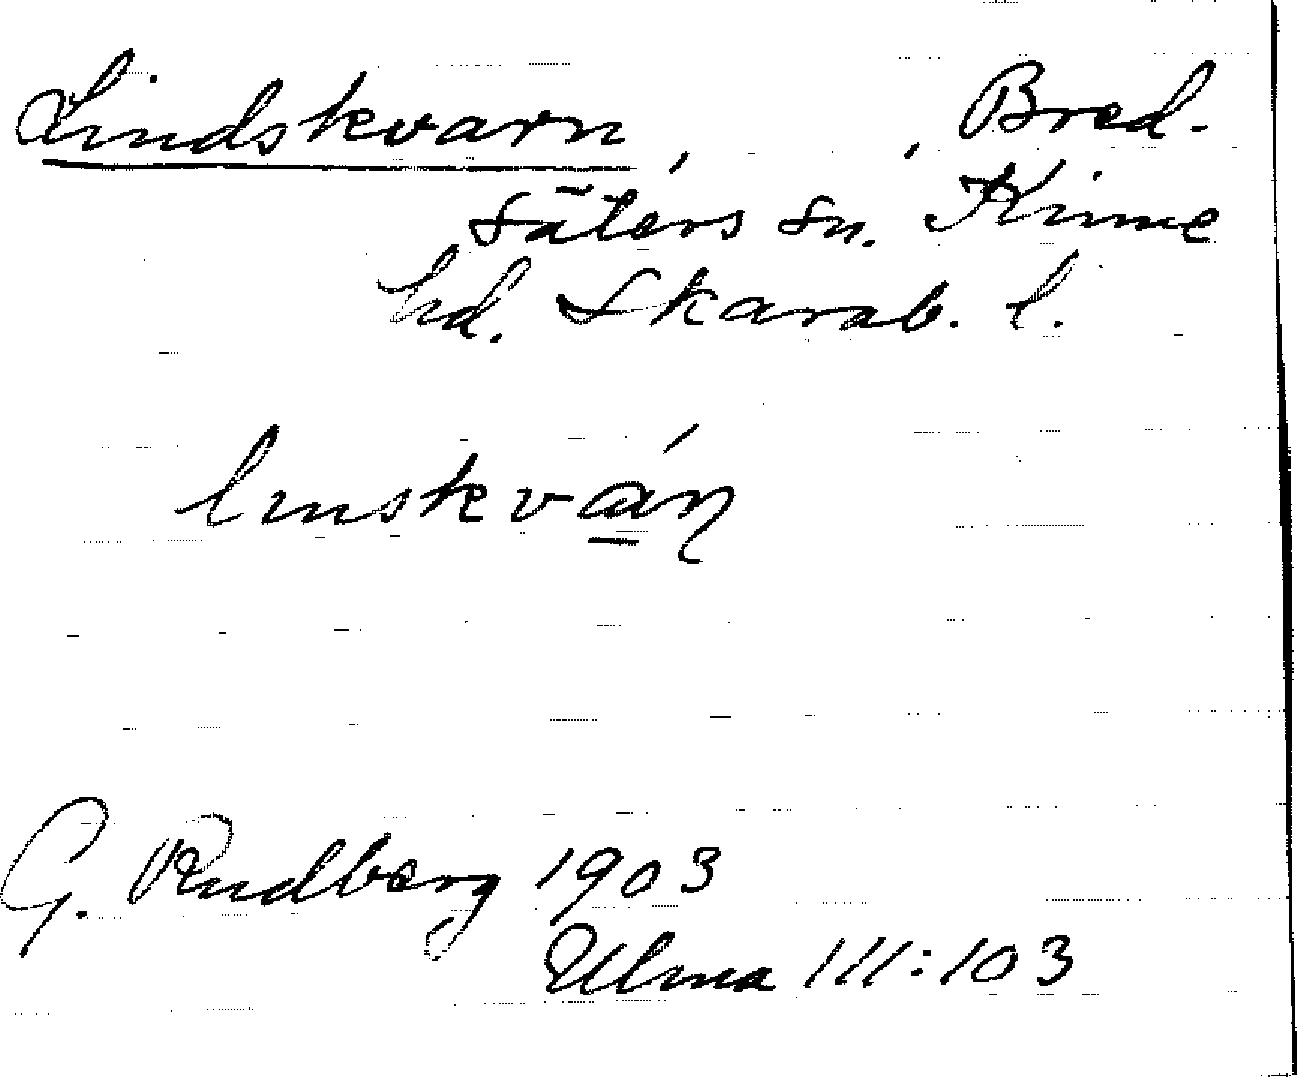 Lindskvarn, , Bred-
säters sn. Kinne
hd. Skarab. l.
linskván
G. Rudberg 1903
Ulma 111:103